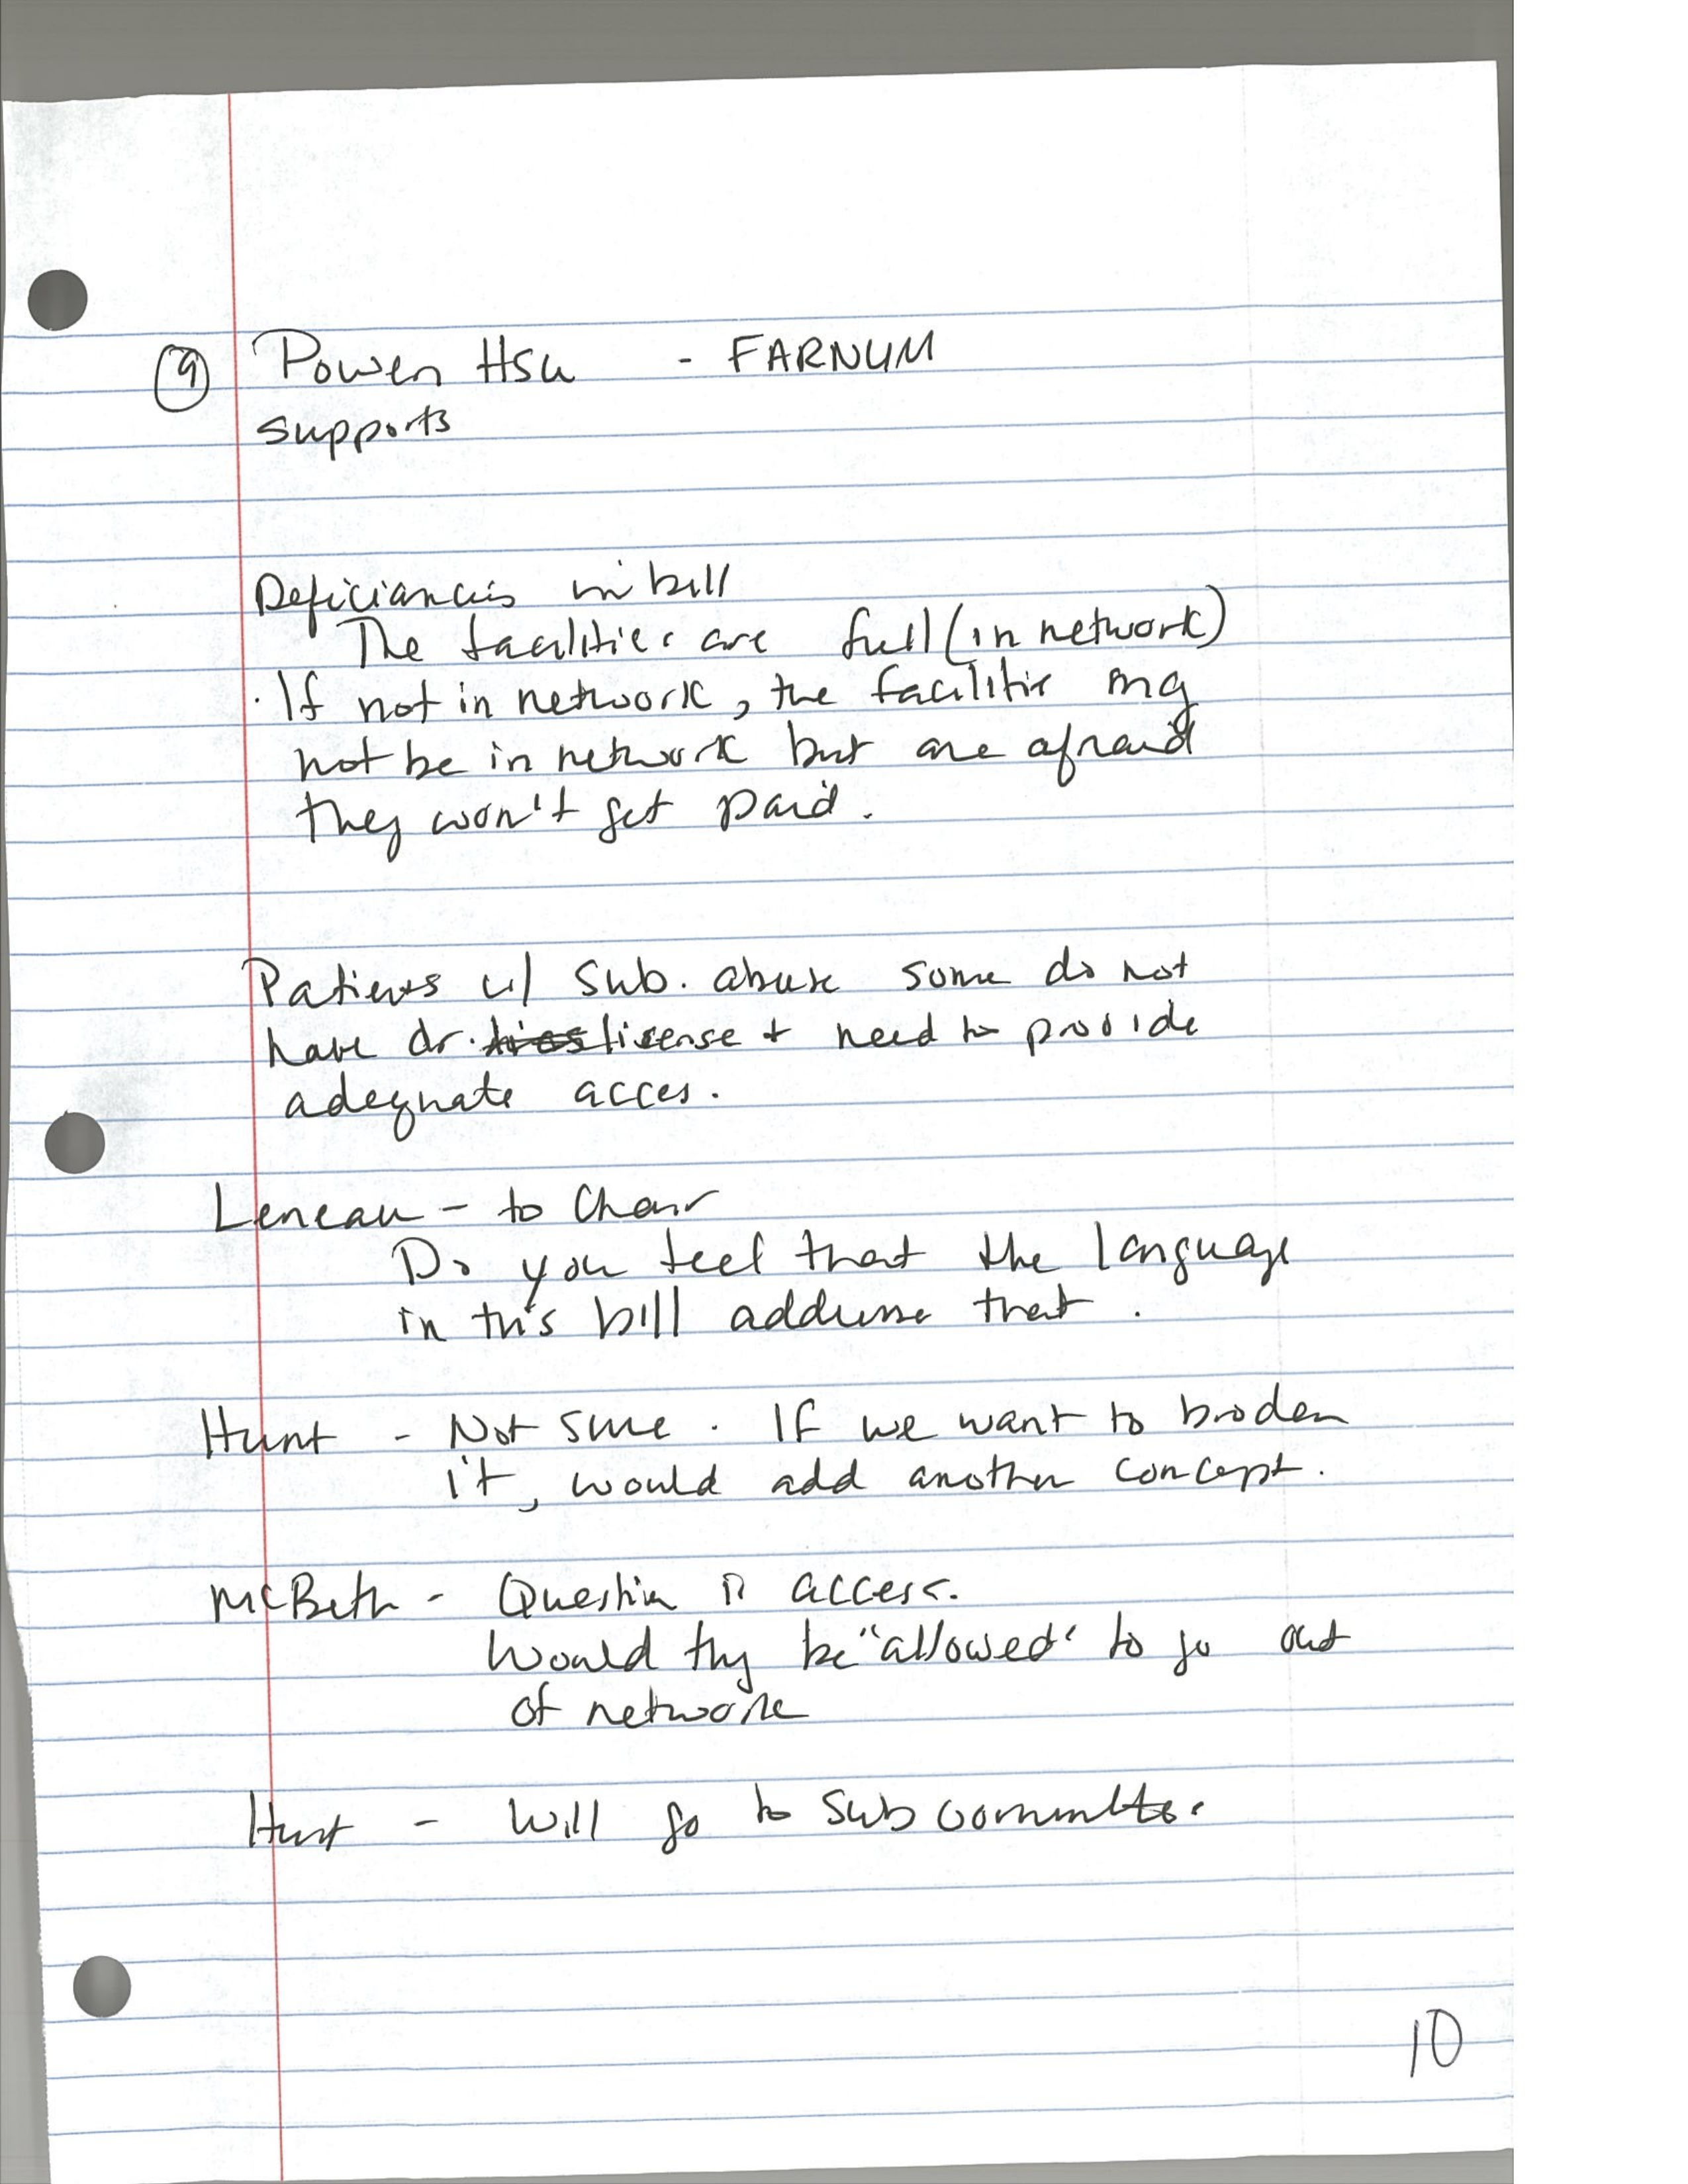 9 Power Hsu - FARNUM
supports
Deficiancis in bill
The facilities are full (in network)
. If not in network, the facilitie my
not be in network but are afraid
they won't get paid.
Patients w/ sub. abuse some do not
have dr. license + need to provide
adequate acces.
Leneau - to Chair
Do you feel that the language
in this bill address that.
Hunt - Not sure. If we want to broden
it, would add another concept.
McBeth - Question is access.
Would thy be "allowed" to go out
of network
Hunt - Will go to sub committee.
10